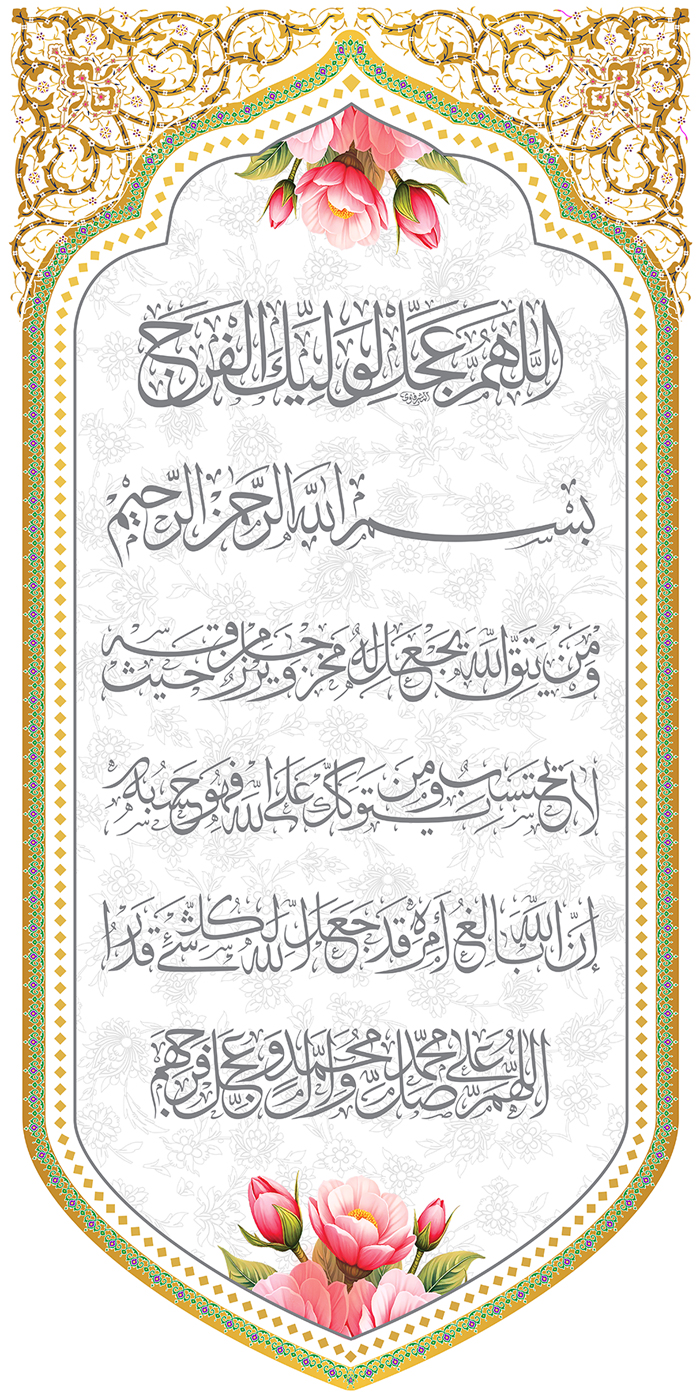 اللهم عجل لوليك الفرج
بسم الله الرحمن الرحيم
ومن يتق الله يجعل له مخرجا ويرزقه من حيث
لا يحتسب ومن يتوكل على الله فهو حسبه
إن الله بالغ أمره قد جعل الله لكل شيء قدرا
اللهم صل على محمد وآل محمد وعجل فرجهم